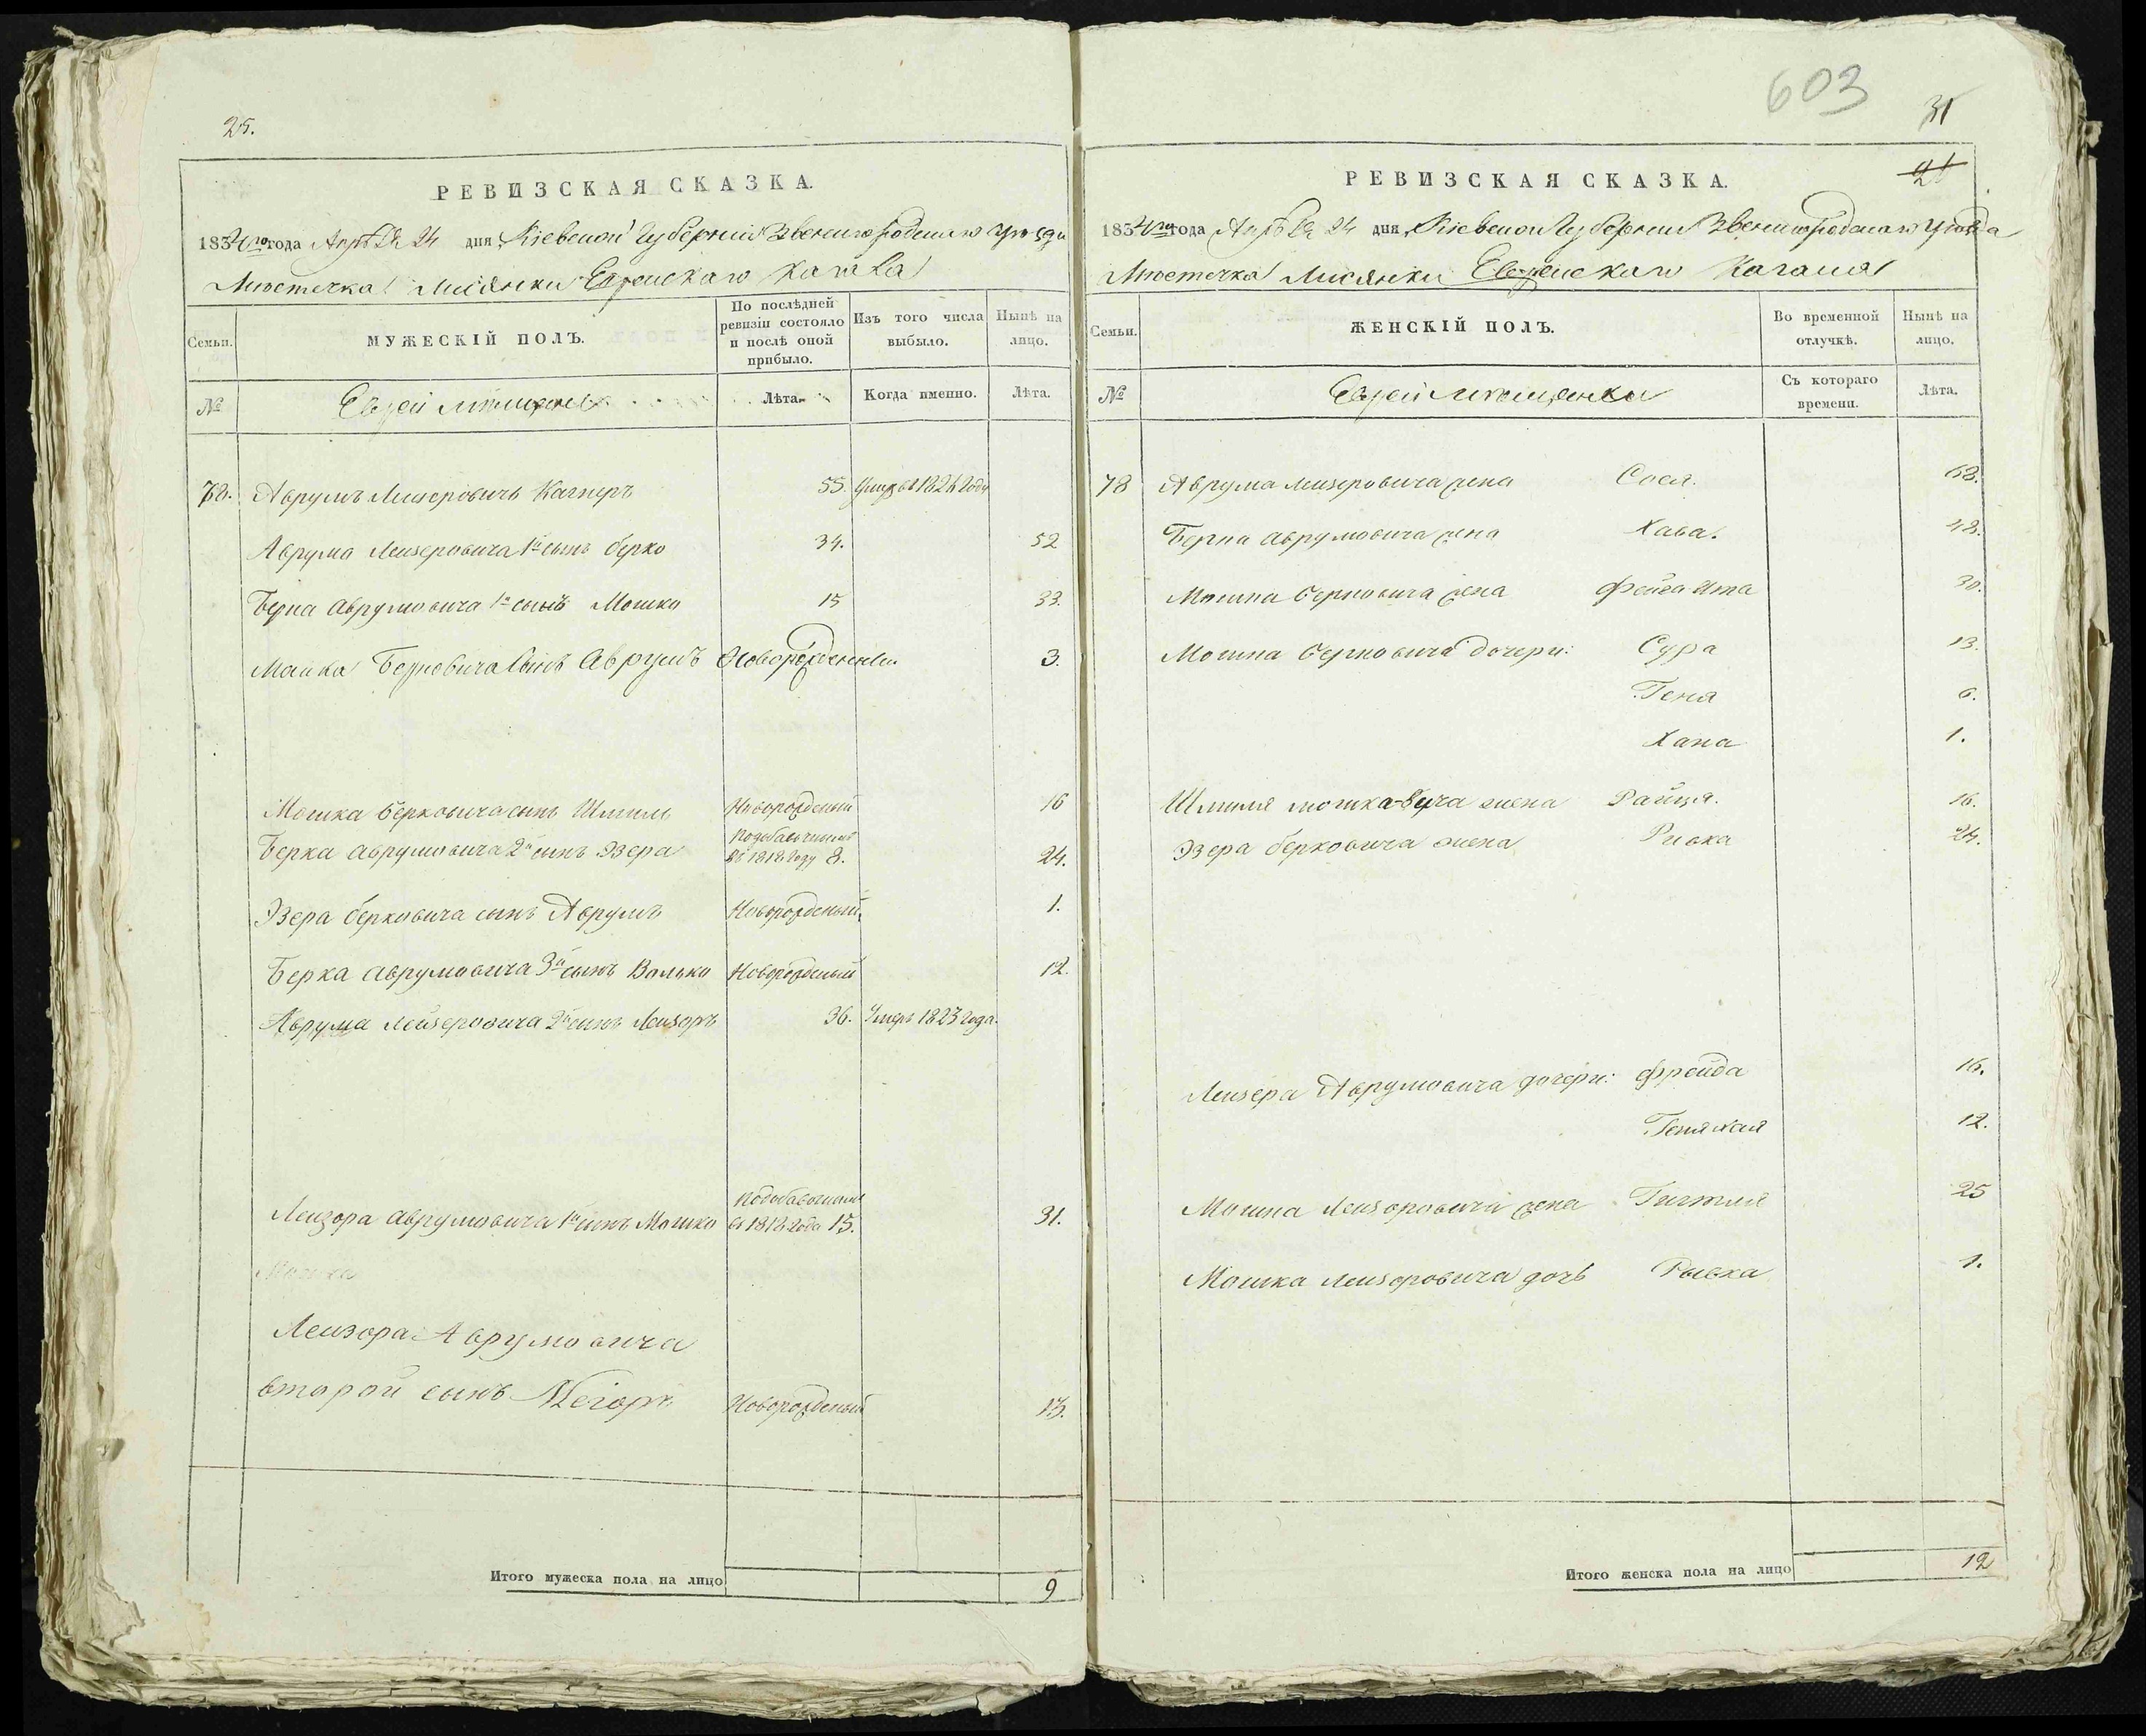 25.
РЕВИЗСКАЯ СКАЗКА.
1834го года Апреля 24 дня Кіевской Губерніи Звенигородскаго Уезда
Местечка Лисянки Еврейскаго Кагала
Семьи.
МУЖЕСКІЙ ПОЛЪ.
По послѣдней ревизіи состояло и послѣ оной прибыло.
Изъ того числа выбыло.
Нынѣ на лицо.
№
Евреи мещане
Лѣта.
Когда именно.
Лѣта.
78. Аврумъ Лейзеровичъ Кагнеръ 55. Умеръ 1824 Году
Аврума Лейзеровича 1й сынъ Берко 34. 52
Берка Аврумовича 1й сынъ Мошко 15 33.
Мошка Берковича Сынъ Аврумъ Новорожденны 3.
Мошка Берковича сынъ Шмиль Новорожденый 16
Берка Аврумовича 2й сынъ Эзера Подобавочнымъ въ 1818 году 8. 24.
Эзера Берковича сынъ Аврумъ Новорожденый 1.
Берка Аврумовича 3й сынъ Волько Новорожденый 12.
Аврума Лейзеровича 2й сынъ Лейзоръ 36. Умеръ 1823 года.
Лейзора Аврумовича 1й сынъ Мошко Подобавочнымъ въ 1818 года 15. 31.
Мошка
Лейзора Аврумовича
второй сынъ Меіоръ Новорожденый 13.
Итого мужеска пола на лицо 9
603
31
21
РЕВИЗСКАЯ СКАЗКА.
1834го года Апреля 24 дня Кіевской Губерніи Звенигородскаго Уезда
Местечка Лисянки Еврейскаго Кагала
Семьи.
ЖЕНСКІЙ ПОЛЪ.
Во временной отлучкѣ.
Нынѣ на лицо.
№
Евреи мещанки
Съ котораго времени.
Лѣта.
78 Аврума Лейзеровича жена Сося. 68.
Берка Аврумовича жена Хава. 48.
Мошка Берковича жена Фейга Ита 30.
Мошка Берковича дочери: Сура 13.
Геня 6.
Хана 1.
Шмиля Мошка-вича жена Райця. 16.
Эзера Берковича жена Ривка 24.
Лейзера Аврумовича дочери: Фрейда 16.
Геня Хая 12.
Мошка Лейзоровича жена Гитля 25
Мошка Лейзеровича дочь Рывка 1.
Итого женска пола на лицо 12